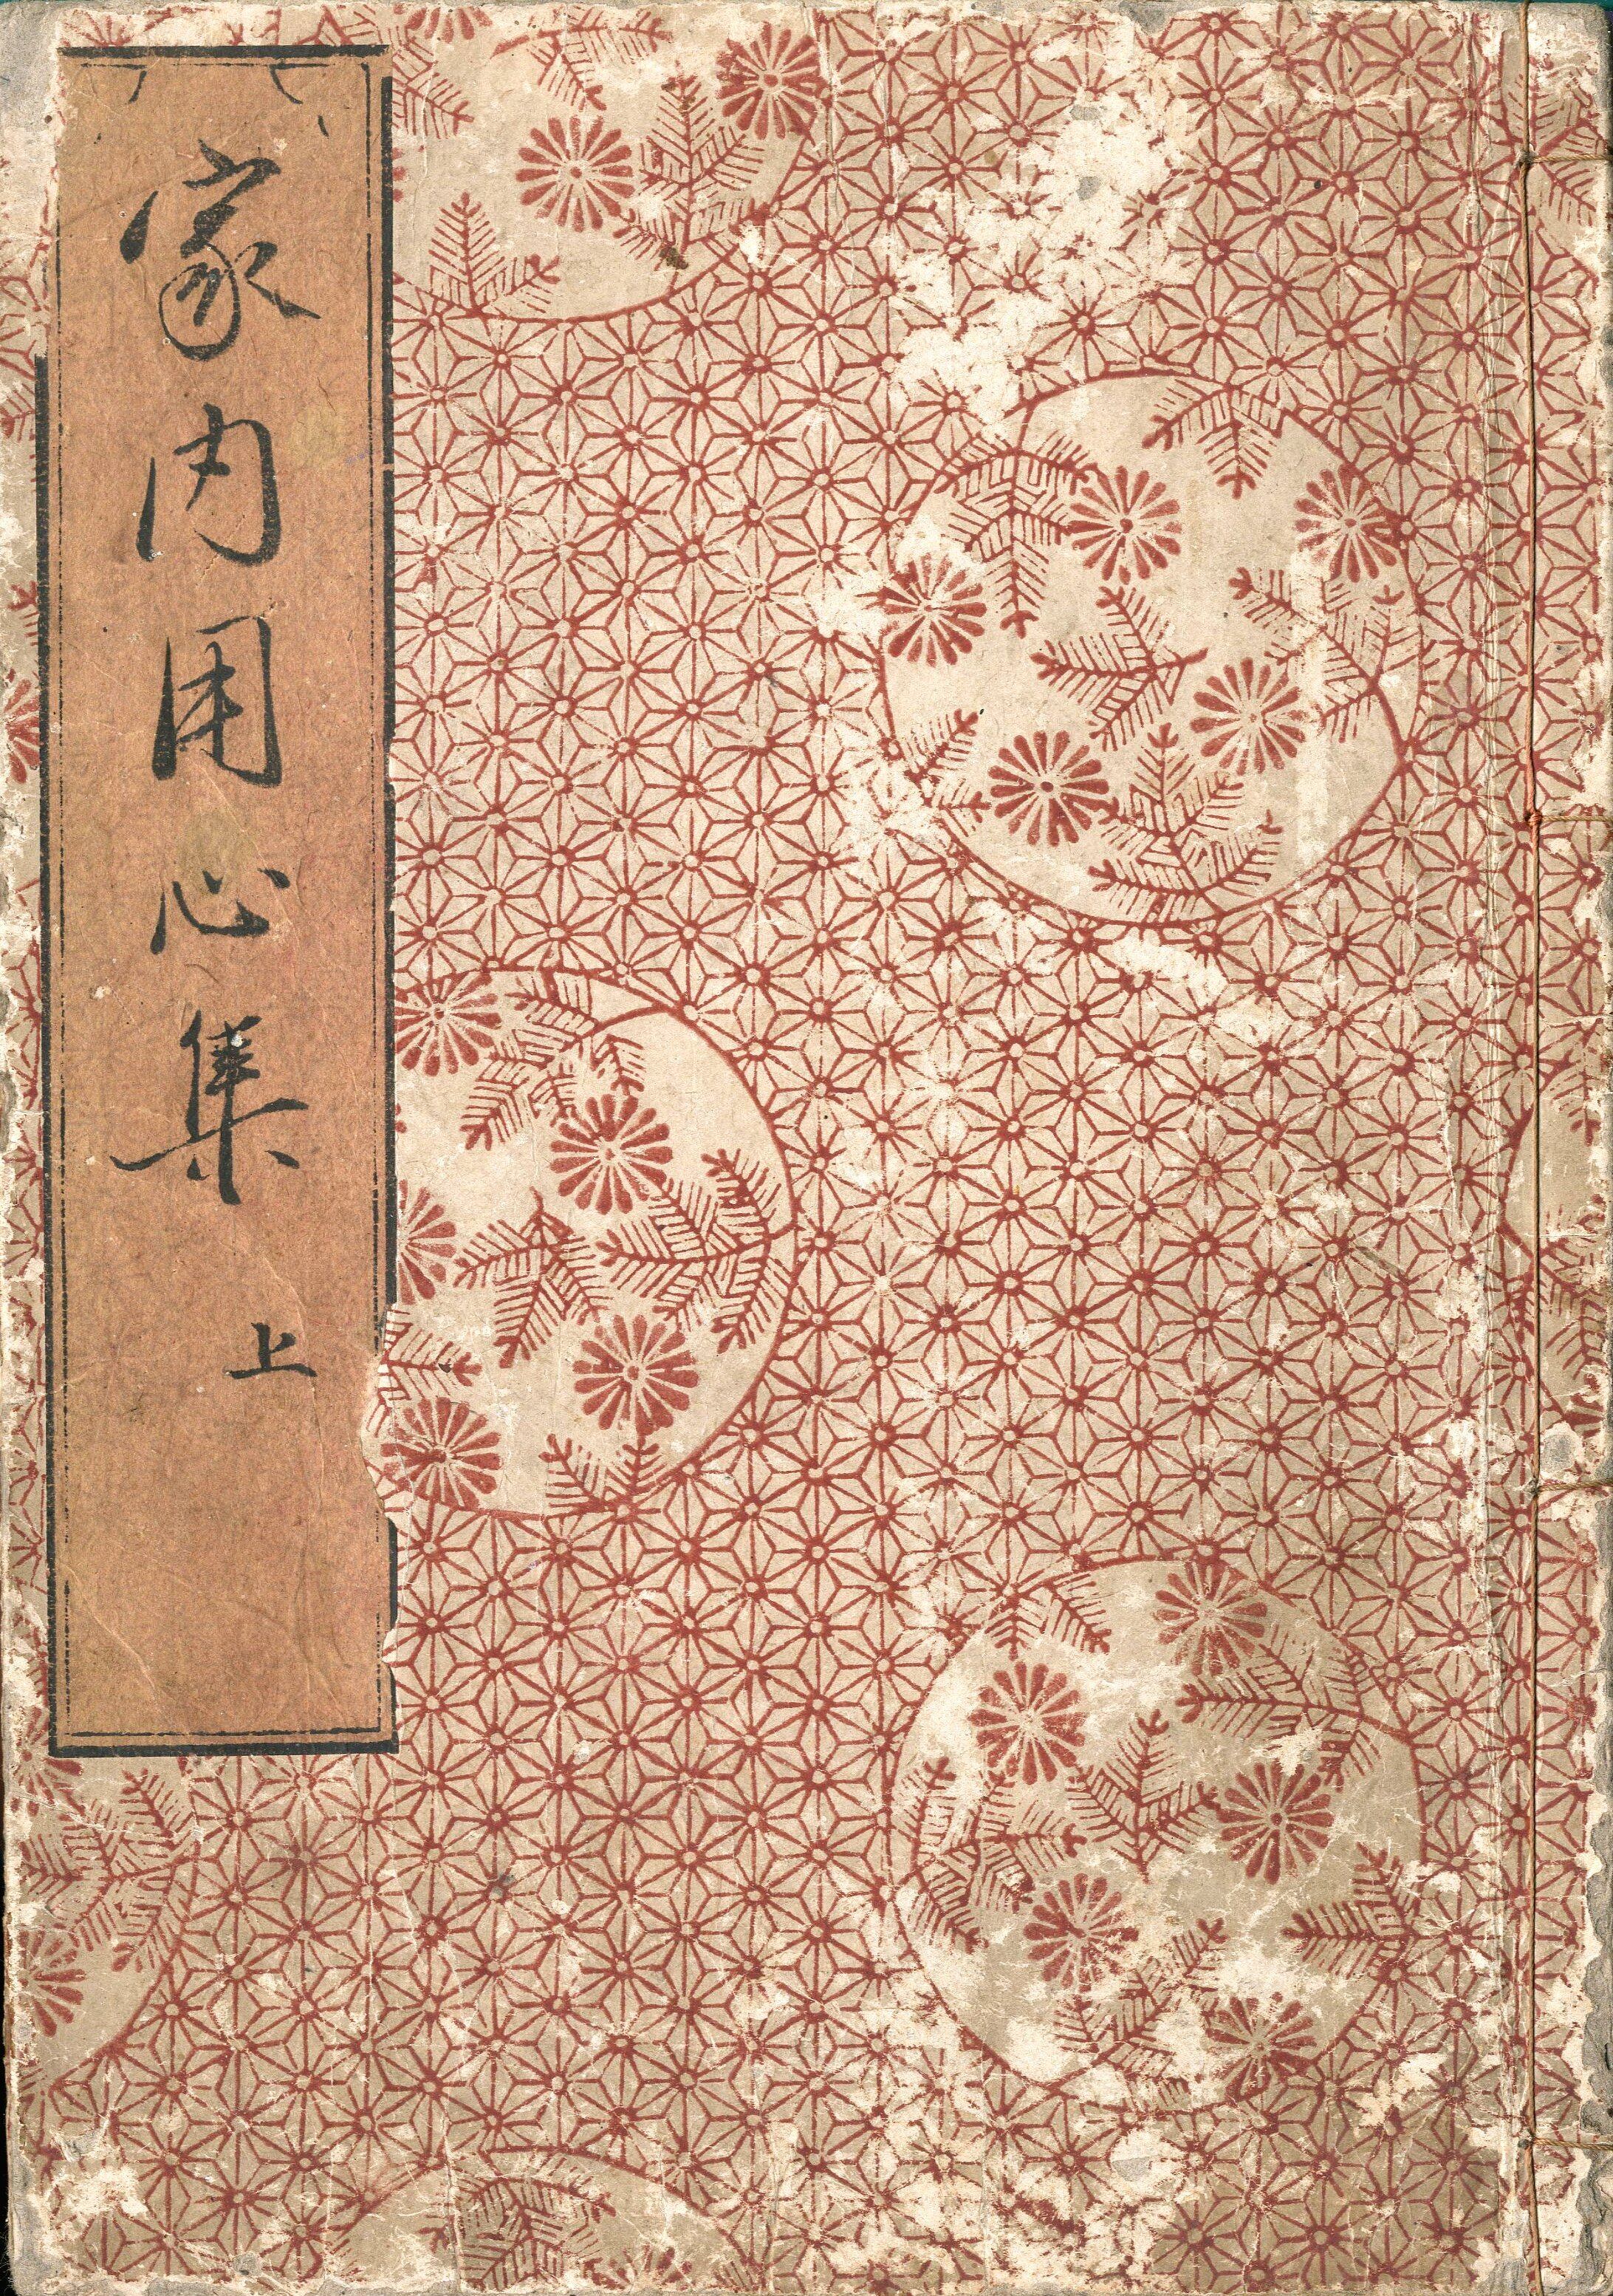 家内用心集
上